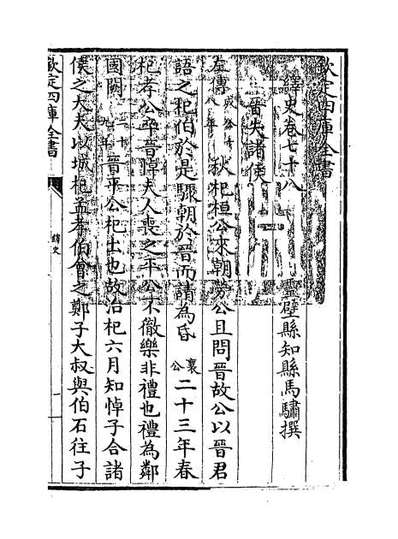 欽定四庫全書
繹史卷七十八
靈壁縣知縣馬驌撰
晉失諸侯
左傳 成公十八年 秋杞桓公來朝勞公且問晉故公以晉君
語之杞伯於是驟朝於晉而請為昏 襄公 二十三年春
杞孝公卒晉悼夫人喪之平公不徹樂非禮也禮為鄰
國闕 二十九年 晉平公杞出也故治杞六月知悼子合諸
侯之大夫以城杞孟孝伯會之鄭子大叔與伯石往子
欽定四庫全書
繹史
一